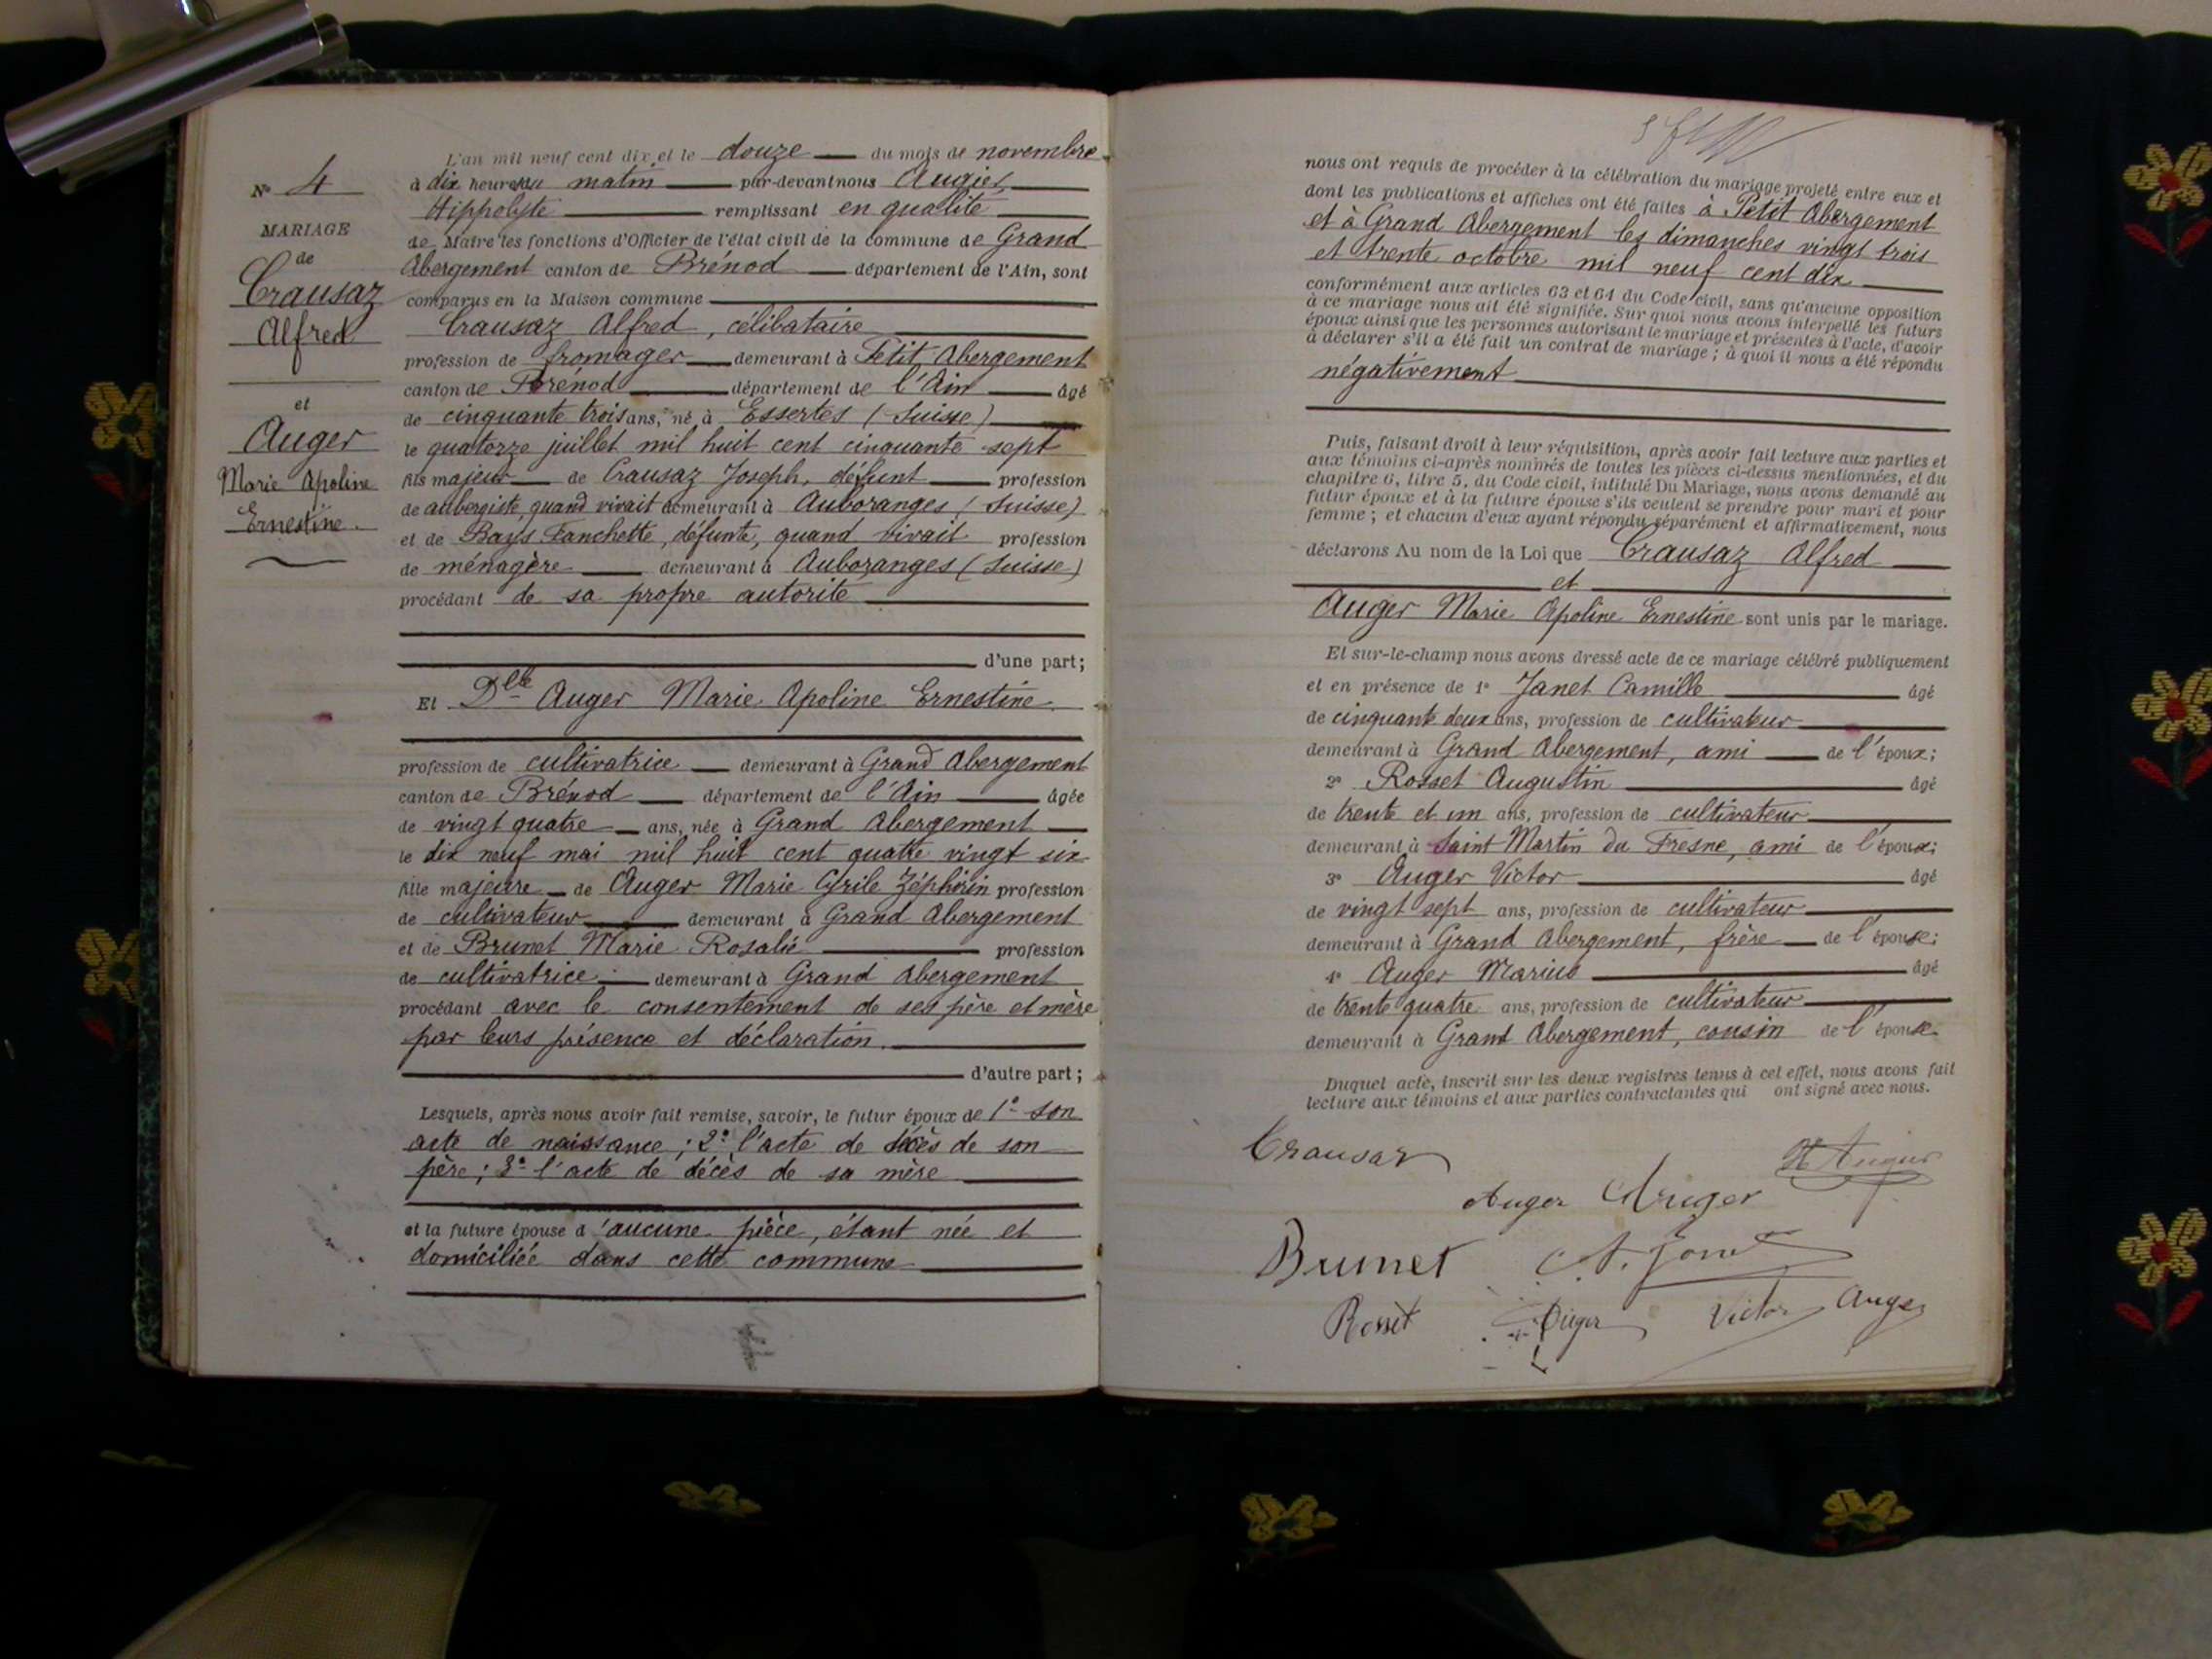 N° 4
MARIAGE
de
Crausaz
Alfred
et
Auger
Marie Apoline
Ernestine.
L'an mil neuf cent dix et le douze du mois de novembre
à dix heures du matin par-devant nous Augier
Hippolyte remplissant en qualité
de Maire les fonctions d'Officier de l'état civil de la commune de Grand
Abergement canton de Brénod département de l'Ain, sont
comparus en la Maison commune
Crausaz Alfred, célibataire
profession de fromager demeurant à Petit Abergement
canton de Brénod département de l'Ain âgé
de cinquante trois ans, né à Essertes (Suisse)
le quatorze juillet mil huit cent cinquante sept
fils majeur de Crausaz Joseph, défunt profession
de aubergiste, quand vivait demeurant à Auboranges (Suisse)
et de Bays Fanchette, défunte, quand vivait profession
de ménagère demeurant à Auboranges (Suisse)
procédant de sa propre autorité
d'une part;
Et Dlle Auger Marie Apoline Ernestine
profession de cultivatrice demeurant à Grand Abergement
canton de Brénod département de l'Ain âgée
de vingt quatre ans, née à Grand Abergement
le dix neuf mai mil huit cent quatre vingt six
fille majeure de Auger Marie Cyrile Zéphirin profession
de cultivateur demeurant à Grand Abergement
et de Brunet Marie Rosalie profession
de cultivatrice demeurant à Grand Abergement
procédant avec le consentement de ses père et mère
par leurs présence et déclaration.
d'autre part;
Lesquels, après nous avoir fait remise, savoir, le futur époux de 1° son
acte de naissance; 2° l'acte de décès de son
père; 3° l'acte de décès de sa mère
et la future épouse d'aucune pièce, étant née et
domiciliée dans cette commune
nous ont requis de procéder à la célébration du mariage projeté entre eux et
dont les publications et affiches ont été faites à Petit Abergement
et à Grand Abergement les dimanches vingt trois
et trente octobre mil neuf cent dix
conformément aux articles 63 et 64 du Code civil, sans qu'aucune opposition
à ce mariage nous ait été signifiée. Sur quoi nous avons interpellé les futurs
époux ainsi que les personnes autorisant le mariage et présentes à l'acte, d'avoir
à déclarer s'il a été fait un contrat de mariage; à quoi il nous a été répondu
négativement
Puis, faisant droit à leur réquisition, après avoir fait lecture aux parties et
aux témoins ci-après nommés de toutes les pièces ci-dessus mentionnées, et du
chapitre 6, titre 5, du Code civil, intitulé Du Mariage, nous avons demandé au
futur époux et à la future épouse s'ils veulent se prendre pour mari et pour
femme; et chacun d'eux ayant répondu séparément et affirmativement, nous
déclarons Au nom de la Loi que Crausaz Alfred
et
Auger Marie Apoline Ernestine sont unis par le mariage.
Et sur-le-champ nous avons dressé acte de ce mariage célébré publiquement
et en présence de 1° Janet Camille âgé
de cinquante deux ans, profession de cultivateur
demeurant à Grand Abergement, ami de l'époux;
2° Rosset Augustin âgé
de trente et un ans, profession de cultivateur
demeurant à Saint Martin du Fresne, ami de l'époux;
3° Auger Victor âgé
de vingt sept ans, profession de cultivateur
demeurant à Grand Abergement, frère de l'épouse;
4° Auger Marius âgé
de trente quatre ans, profession de cultivateur
demeurant à Grand Abergement, cousin de l'épouse
Duquel acte, inscrit sur les deux registres tenus à cet effet, nous avons fait
lecture aux témoins et aux parties contractantes qui ont signé avec nous.
Crausaz
Auger Auger
Brunet
Rosset Auger Victor Auger